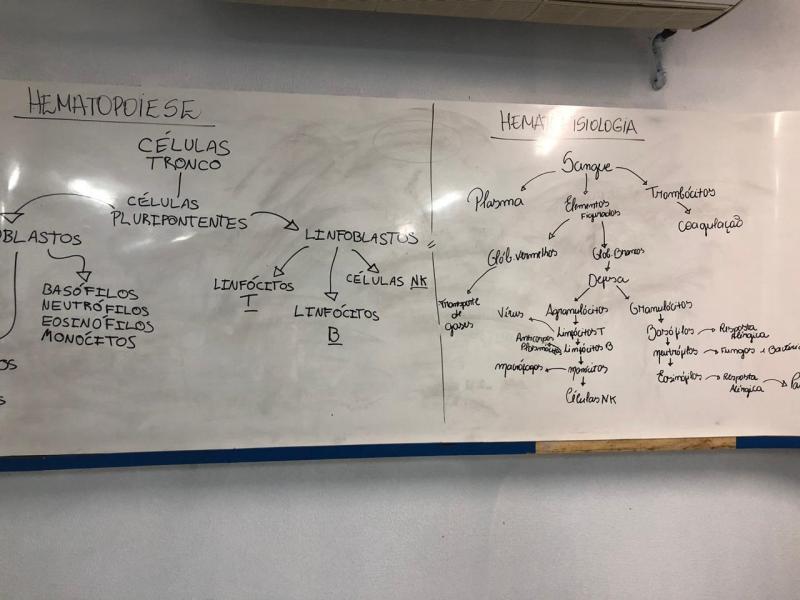 HEMATOPOIESE
CÉLULAS
TRONCO
CÉLULAS
PLURIPONTENTES
OBLASTOS
BASÓFILOS
NEUTRÓFILOS
EOSINÓFILOS
MONÓCITOS
OS
S
LINFOBLASTOS
LINFÓCITOS
T
LINFÓCITOS
B
CÉLULAS NK
HEMAT ISIOLOGIA
Sangue
Plasma
Elementos
Figurados
Trombócitos
Coagulação
Glób. vermelhos
Glób. Brancos
Transporte
de
gases
Defesa
Agranulócitos
Granulócitos
Vírus
Linfócitos T
Anticorpos
Plasmócitos
Linfócitos B
macrófagos
monócitos
Células NK
Basófilos
Resposta
Alérgica
neutrófilos
Fungos e Bactéria
Eosinófilos
Resposta
Alérgica
Pa